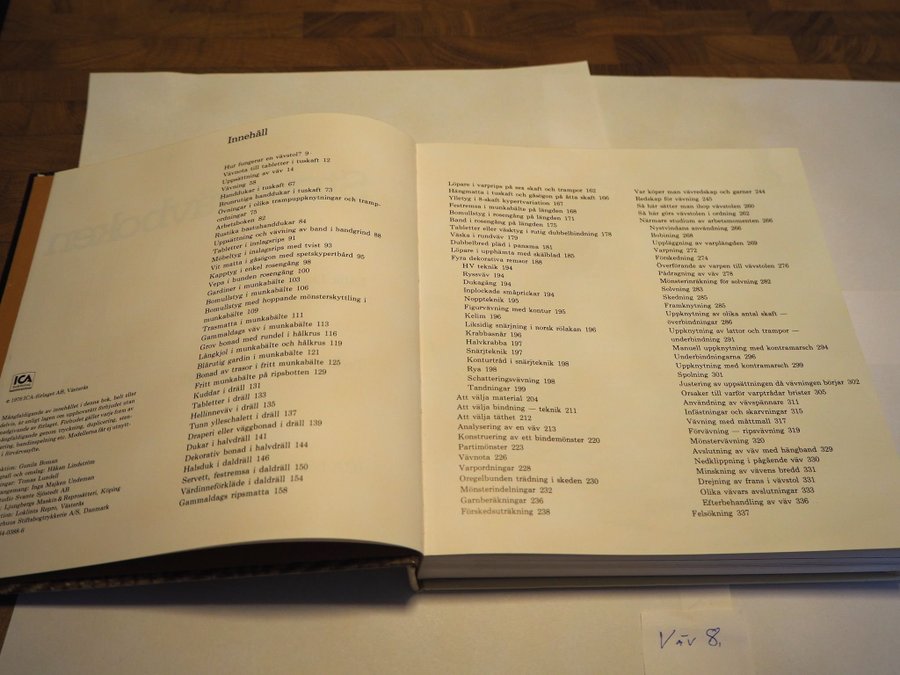 Innehåll
Hur fungerar en vävstol? 9
Vävnota till tabletter i tuskaft 12
Uppsättning av väv 14
Vävning 58
Handdukar i tuskaft 67
Brunrutiga handdukar i tuskaft 73
Övningar i olika trampuppknytningar och tramp-
ordningar 75
Arbetsboken 82
Rustika bastuhanddukar 84
Uppsättning och vävning av band i bandgrind 88
Tabletter i inslagsrips 91
Möbeltyg i inslagsrips med tvist 93
Vit matta i gåsögon med spetskypertbård 95
Kapptyg i enkel rosengång 98
Vepa i bunden rosengång 100
Gardiner i munkabälte 103
Bomullstyg i munkabälte 106
Bomullstyg med hoppande mönsterskyttling i
munkabälte 109
Trasmatta i munkabälte 111
Gammaldags väv i munkabälte 113
Grov bonad med rundel i hålkrus 116
Långkjol i munkabälte och hålkrus 119
Blårutig gardin i munkabälte 121
Bonad av trasor i fritt munkabälte 125
Fritt munkabälte på ripsbotten 129
Kuddar i dräll 131
Tabletter i dräll 133
Hellinneväv i dräll 135
Tunn ylleschalet i dräll 137
Draperi eller väggbonad i dräll 139
Dukar i halvdräll 141
Dekorativ bonad i halvdräll 144
Halsduk i daldräll 146
Servett, festremsa i daldräll 150
Värdinneförkläde i daldräll 154
Gammaldags ripsmatta 158
ICA
© 1978 ICA-förlaget AB, Västerås
Mångfaldigande av innehållet i denna bok, helt eller
delvis, är enligt lagen om upphovsrätt förbjudet utan
medgivande av förlaget. Förbudet gäller varje form av
mångfaldigande genom tryckning, duplicering, sten-
cilering, bandinspelning etc. Modellerna får ej utnytt-
i förvärvssyfte.
Gunila Boman
omslag: Håkan Lindström
Tomas Lundell
Inga Majken Undeman
Studio Svante Sjöstedt AB
Ljungbergs Maskin & Reprosätteri, Köping
Loklista Repro, Västerås
Stiftsbogtrykkerie A/S, Danmark
Löpare i varprips på sex skaft och trampor 162
Hängmatta i tuskaft och gåsögon på åtta skaft 166
Ylletyg i 8-skaft kypertvariation 167
Festremsa i munkabälte på längden 168
Bomullstyg i rosengång på längden 171
Band i rosengång på längden 175
Tabletter eller väsktyg i rutig dubbelbindning 178
Väska i rundväv 179
Dubbelbred pläd i panama 185
Löpare i upphämta med skälblad 185
Fyra dekorativa remsor 188
HV teknik 194
Ryssväv 194
Dukagång 194
Inplockade småprickar 194
Noppteknik 195
Figurvävning med kontur 195
Kelim 196
Liksidig snärjning i norsk rölakan 196
Krabbasnår 196
Halvkrabba 197
Snärjteknik 197
Konturträd i snärjteknik 198
Rya 198
Schatteringsvävning 198
Tandningar 199
Att välja material 204
Att välja bindning — teknik 211
Att välja täthet 212
Analysering av en väv 213
Konstruering av ett bindemönster 220
Partimönster 223
Vävnota 226
Varpordningar 228
Oregelbunden trädning i skeden 230
Mönsterindelningar 232
Garnberäkningar 236
Förskedsuträkning 238
Var köper man vävredskap och garner 244
Redskap för vävning 245
Så här sätter man ihop vävstolen 260
Så här görs vävstolen i ordning 262
Närmare studium av arbetsmomenten 266
Nystvindans användning 266
Bobining 268
Uppläggning av varplängden 269
Varpning 272
Förskedning 274
Överförande av varpen till vävstolen 276
Pådragning av väv 278
Mönsterinräkning för solvning 282
Solvning 283
Skedning 285
Framknytning 285
Uppknytning av olika antal skaft —
överbindningar 286
Uppknytning av lattor och trampor —
underbindning 291
Manuell uppknytning med kontramarsch 294
Underbindningarna 296
Uppknytning med kontramarsch 299
Spolning 301
Justering av uppsättningen då vävningen börjar 302
Orsaker till varför varptrådar brister 305
Användning av vävspännare 311
Infästningar och skarvningar 315
Vävning med måttmall 317
Förvävning — ripsvävning 319
Mönstervävning 320
Avslutning av väv med hängband 329
Nedklippning i pågående väv 330
Minskning av vävens bredd 331
Drejning av frans i vävstol 331
Olika vävars avslutningar 333
Efterbehandling av väv 336
Felsökning 337
Väv 8.